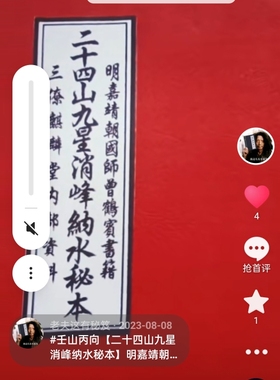 明嘉靖朝國師曾鶴賓書籍
二十四山九星消峰納水秘本
三僚麒麟堂内部資料
4
抢首评
1
老夫这有秘笈 · 2023-08-08
#壬山丙向【二十四山九星
消峰纳水秘本】明嘉靖朝...